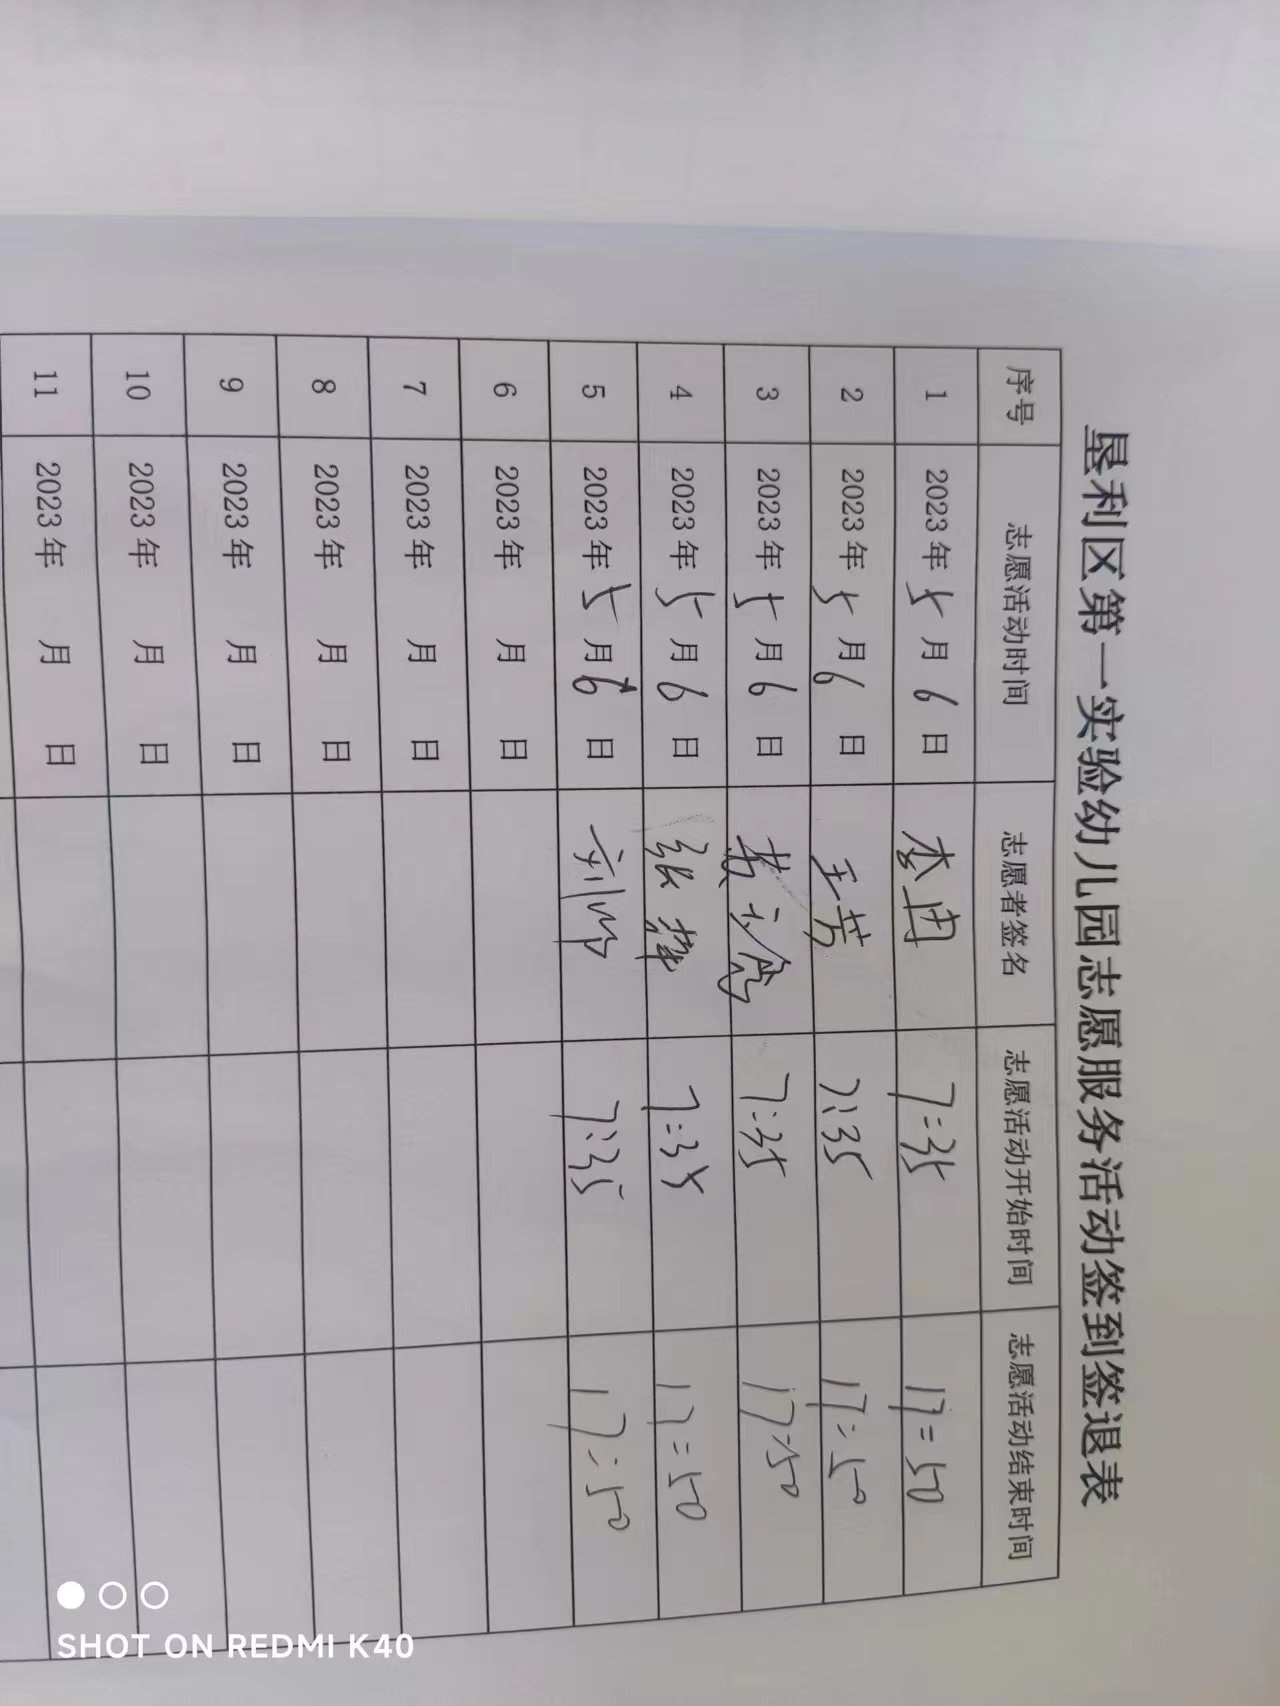 垦利区第一实验幼儿园志愿服务活动签到签退表
序号 志愿活动时间 志愿者签名 志愿活动开始时间 志愿活动结束时间
1 2023年5月6日 李冉 7:35 17:50
2 2023年5月6日 王芳 7:35 17:50
3 2023年5月6日 7:35 17:50
4 2023年5月6日 张 7:35 17:50
5 2023年5月6日 刘 7:35 17:50
6 2023年 月 日
7 2023年 月 日
8 2023年 月 日
9 2023年 月 日
10 2023年 月 日
11 2023年 月 日
SHOT ON REDMI K40